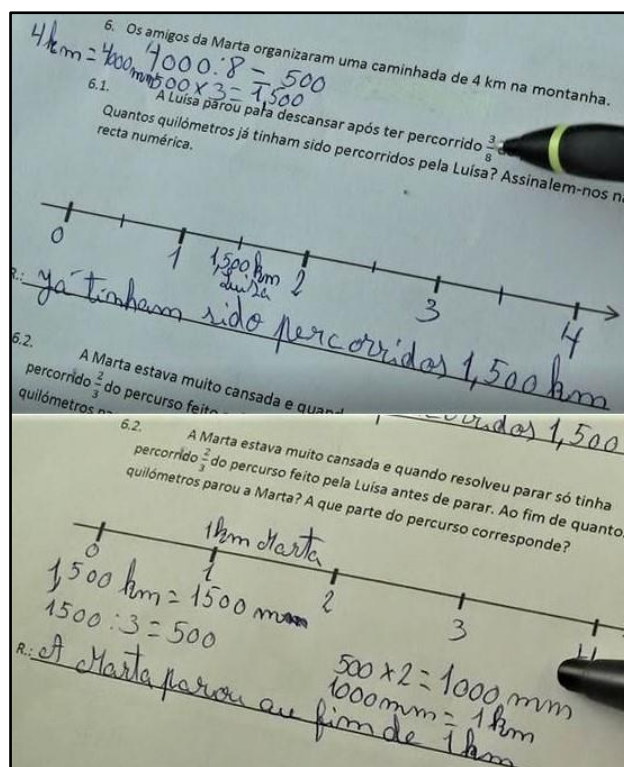 6. Os amigos da Marta organizaram uma caminhada de 4 km na montanha.
4km = 4000 mm
4000 : 8 = 500
500 x 3 = 1,500
6.1. A Luísa parou para descansar após ter percorrido 3/8
Quantos quilómetros já tinham sido percorridos pela Luísa? Assinalem-nos n
recta numérica.
0 1 2 3 4
1,500 km
Luísa
R.: Já tinham sido percorridos 1,500 km
6.2. A Marta estava muito cansada e quand
percorrido 2/3 do percurso feito
quilómetros
1,500
6.2. A Marta estava muito cansada e quando resolveu parar só tinha
percorrido 2/3 do percurso feito pela Luísa antes de parar. Ao fim de quanto
quilómetros parou a Marta? A que parte do percurso corresponde?
1km Marta
0 1 2 3
1,500 km = 1500 m
1500 : 3 = 500
500 x 2 = 1000 mm
1000 mm = 1 km
R.: A Marta parou au fim de 1 km